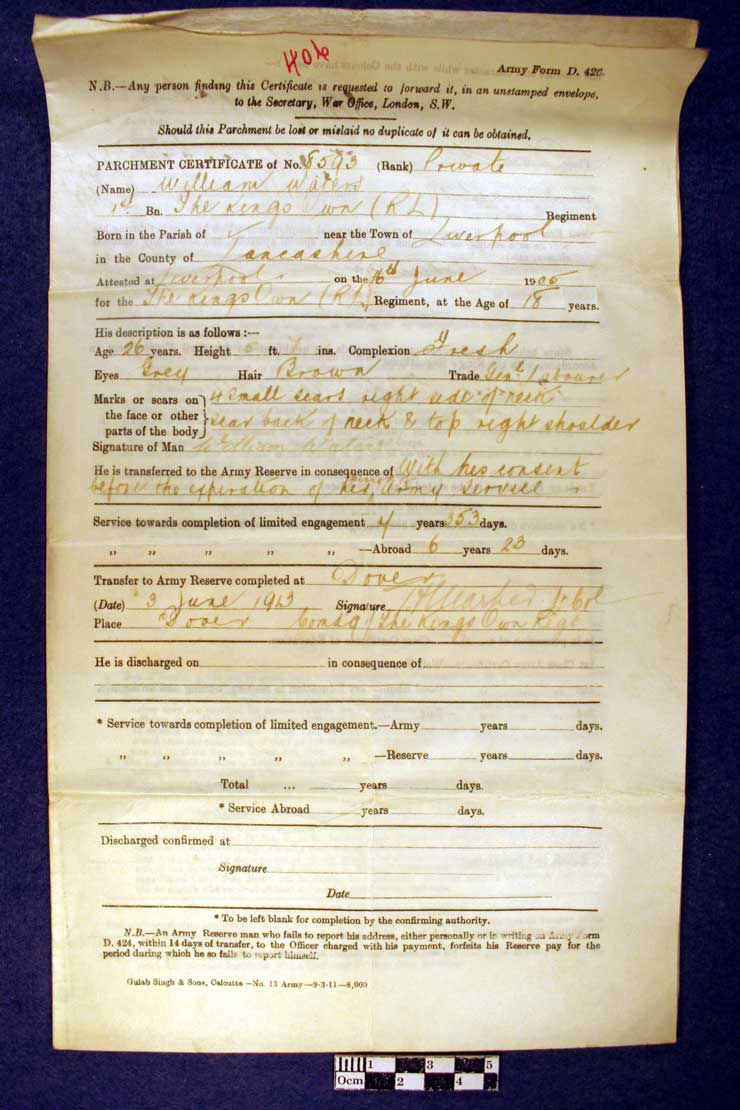 406
Army Form D. 426.
N.B.—Any person finding this Certificate is requested to forward it, in an unstamped envelope,
to the Secretary, War Office, London, S.W.
Should this Parchment be lost or mislaid no duplicate of it can be obtained.
PARCHMENT CERTIFICATE of No. 8593 (Rank) Private
(Name) William Waters
1st Bn. The Kings Own (R L) Regiment
Born in the Parish of near the Town of Liverpool
in the County of Lancashire
Attested at Liverpool on the 16th June 1905
for the The Kings Own (R L) Regiment, at the Age of 18 years.
His description is as follows :—
Age 26 years. Height ft. 7 ins. Complexion Fresh
Eyes Grey Hair Brown Trade Genl Labourer
Marks or scars on the face or other parts of the body
4 small scars right side of neck
scar back of neck & top right shoulder
Signature of Man William Waters
He is transferred to the Army Reserve in consequence of With his consent
before the expiration of his Army Service
Service towards completion of limited engagement years 353 days.
„ „ „ „ „ —Abroad 6 years 23 days.
Transfer to Army Reserve completed at Dover
(Date) 3 June 1913 Signature Lt Col
Place Dover Comdg The Kings Own Regt
He is discharged on in consequence of
* Service towards completion of limited engagement.—Army years days.
„ „ „ „ „ —Reserve years days.
Total ... years days.
* Service Abroad years days.
Discharged confirmed at
Signature
Date
* To be left blank for completion by the confirming authority.
N.B.—An Army Reserve man who fails to report his address, either personally or in writing on Army Form
D. 424, within 14 days of transfer, to the Officer charged with his payment, forfeits his Reserve pay for the
period during which he so fails to report himself.
Gulab Singh & Sons, Calcutta —No. 13 Army—9-3-11—8,000
1 3 5
0cm 2 4